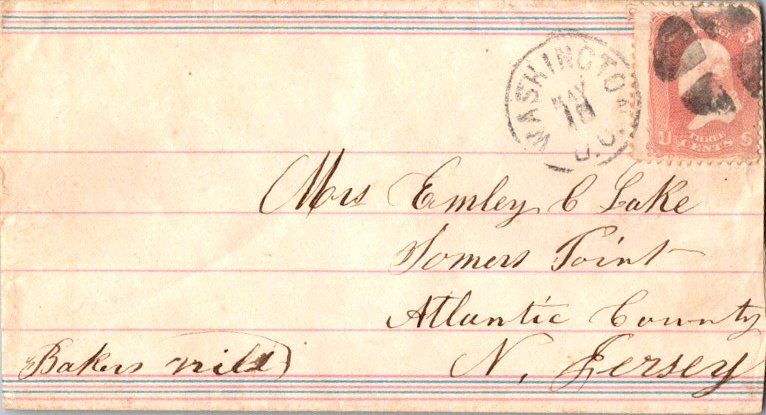 WASHINGTON
MAY
18
D.C.
3
U THREE S
CENTS
Mrs Emley C Lake
Somers Point
Atlantic County
N. Jersey
Bakers